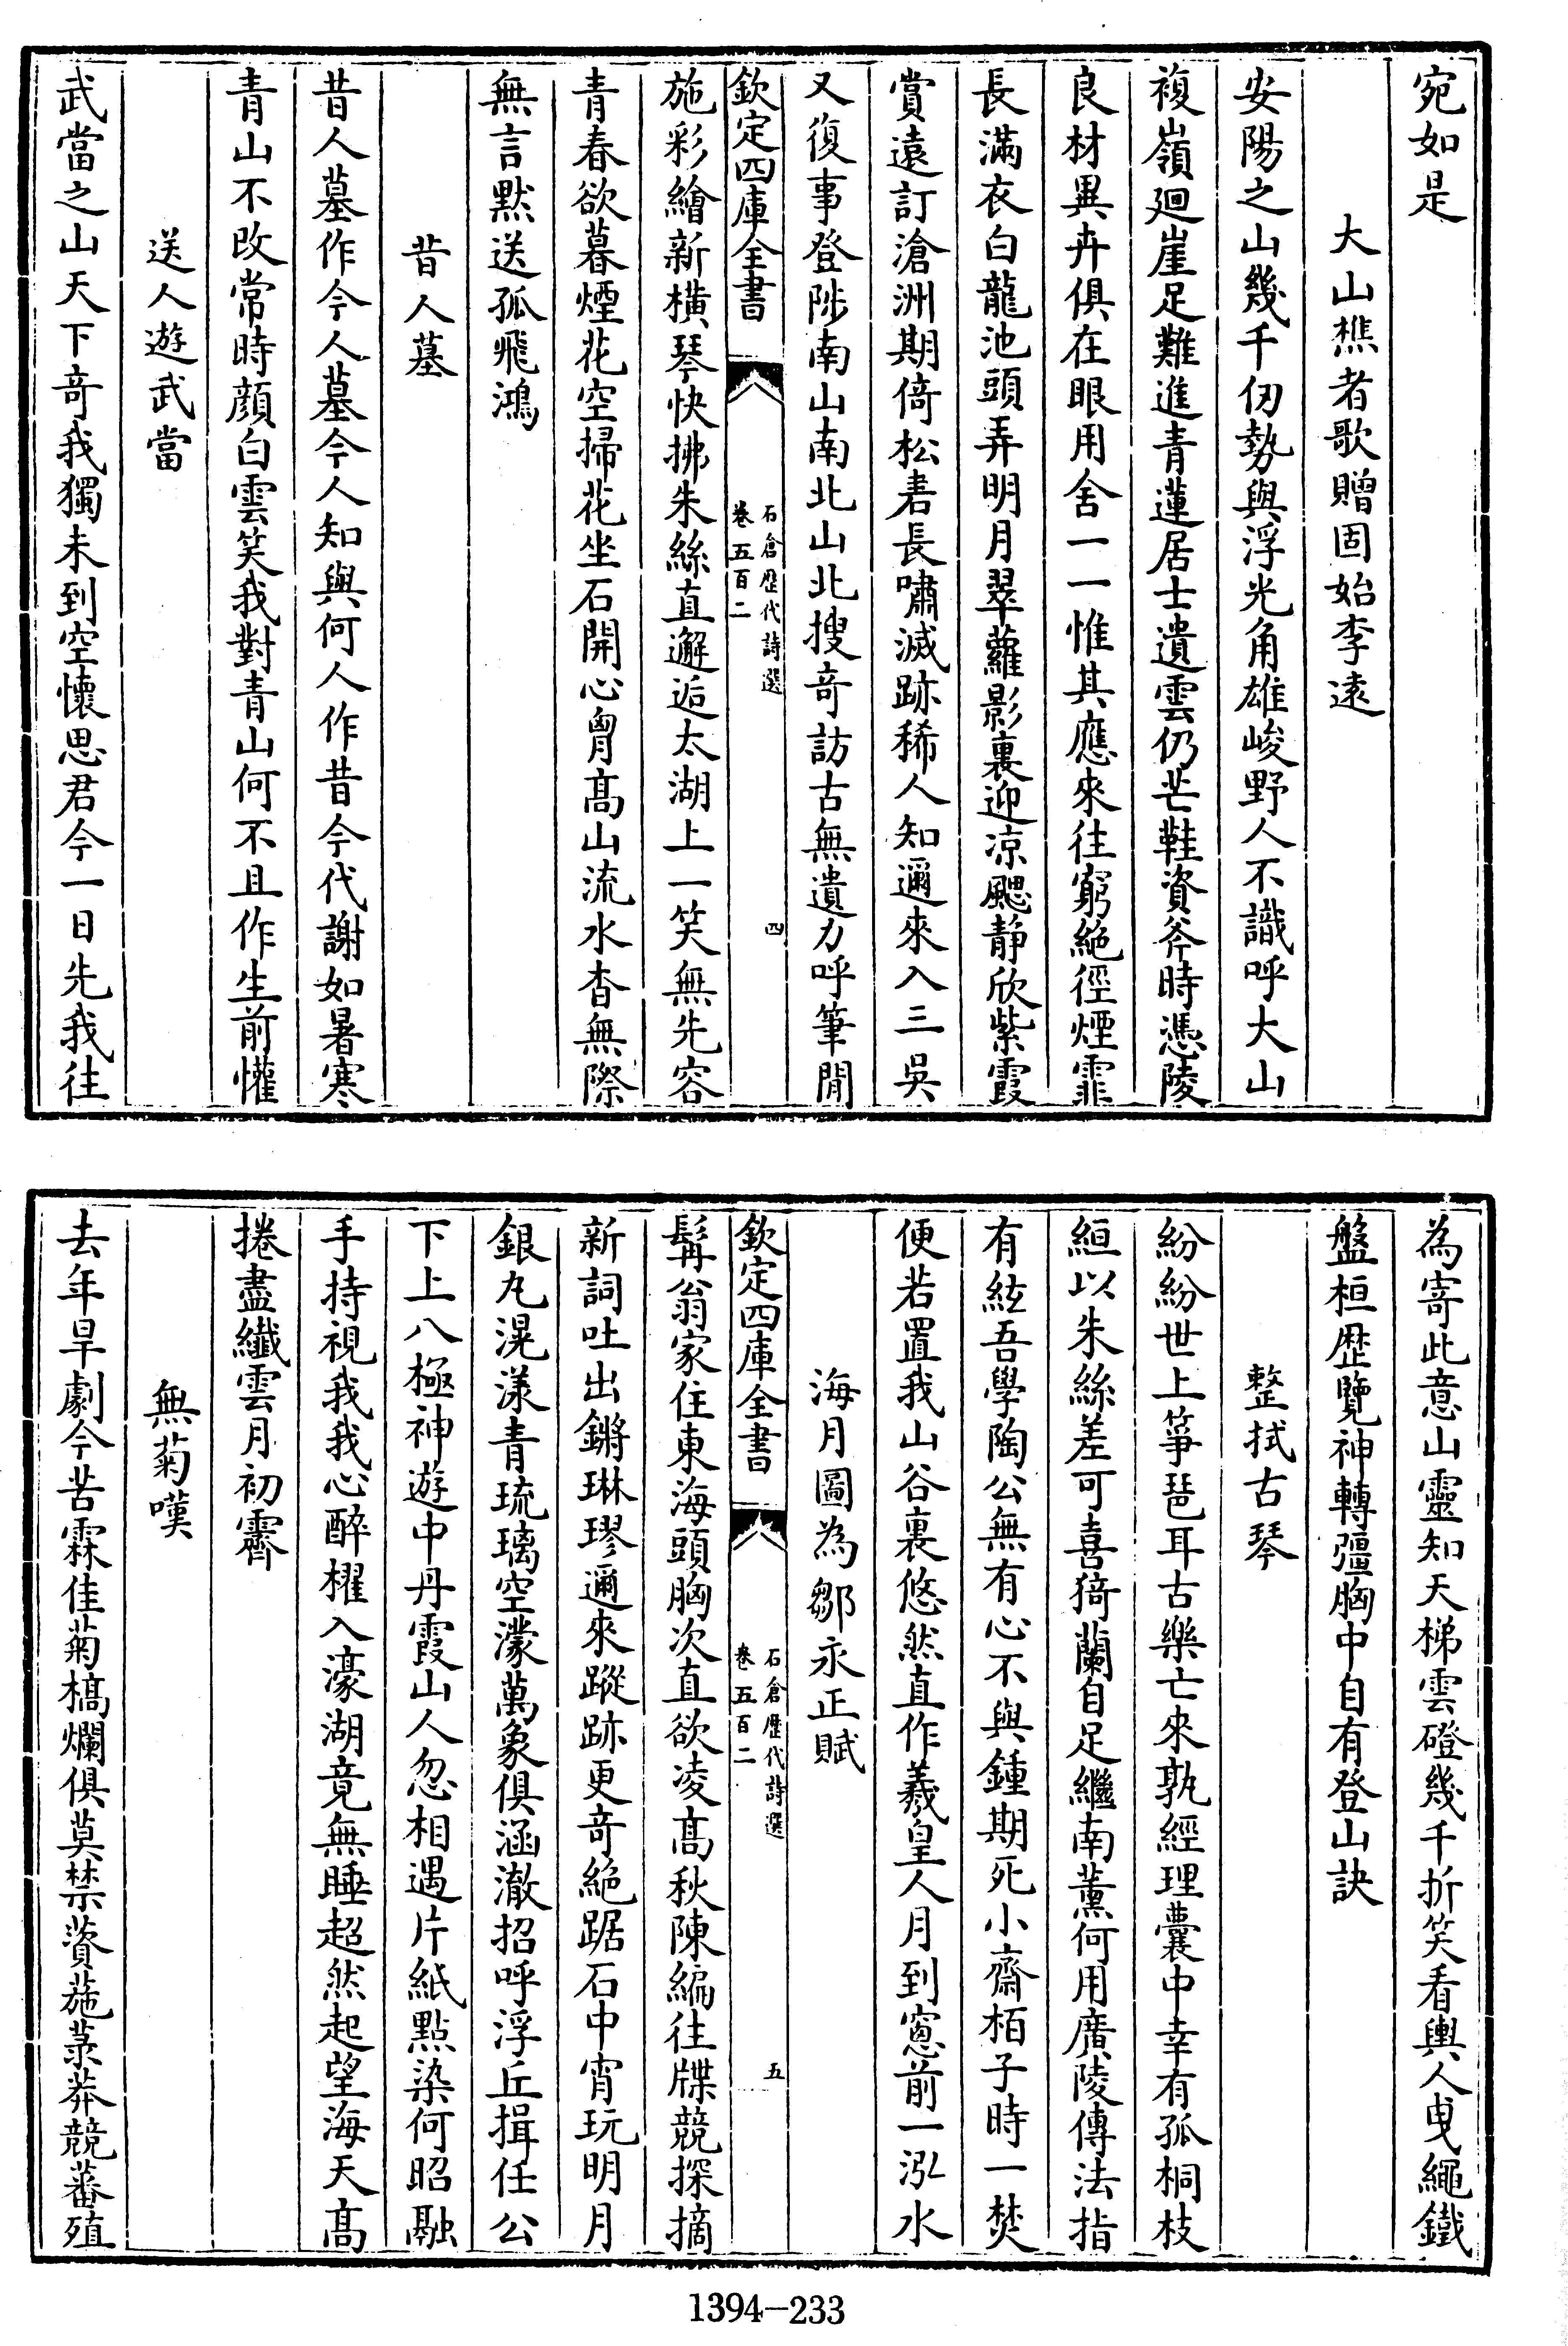 宛如是
大山樵者歌贈固始李遠
安陽之山幾千仞勢與浮光角雄峻野人不識呼大山
複嶺廻崖足難進青蓮居士遺雲仍芒鞋資斧時憑陵
良材異卉俱在眼用舍一一惟其應來往窮絶徑煙霏
長滿衣白龍池頭弄明月翠蘿影裏迎凉颸靜欣紫霞
賞遠訂滄洲期倚松書長嘯滅跡稀人知邇來入三吳
又復事登陟南山南北山北搜奇訪古無遺力呼筆閒
欽定四庫全書
石倉歴代詩選
卷五百二
四
施彩繪新橫琴快拂朱絲直邂逅太湖上一笑無先容
青春欲暮煙花空掃花坐石開心胷髙山流水杳無際
無言默送孤飛鴻
昔人墓
昔人墓作今人墓今人知與何人作昔今代謝如暑寒
青山不改常時顔白雲笑我對青山何不且作生前懽
送人遊武當
武當之山天下奇我獨未到空懷思君今一日先我往
為寄此意山靈知天梯雲磴幾千折笑看輿人曳繩鐵
盤桓歴覽神轉彊胸中自有登山訣
整拭古琴
紛紛世上箏琶耳古樂亡來孰經理囊中幸有孤桐枝
絙以朱絲差可喜猗蘭自足繼南薰何用廣陵傳法指
有絃吾學陶公無有心不與鍾期死小齋栢子時一焚
便若置我山谷裏悠然直作羲皇人月到窻前一泓水
海月圖為鄒永正賦
欽定四庫全書
石倉歴代詩選
卷五百二
五
髯翁家住東海頭胸次直欲凌髙秋陳編往牒競探摘
新詞吐出鏘琳璆邇來蹤跡更奇絶踞石中宵玩明月
銀丸滉漾青琉璃空濛萬象俱涵澈招呼浮丘揖任公
下上八極神遊中丹霞山人忽相遇片紙點染何昭融
手持視我我心醉櫂入濠湖竟無睡超然起望海天髙
捲盡纎雲月初霽
無菊嘆
去年旱劇今苦霖佳菊槁爛俱莫禁薋葹菉莽競蕃殖